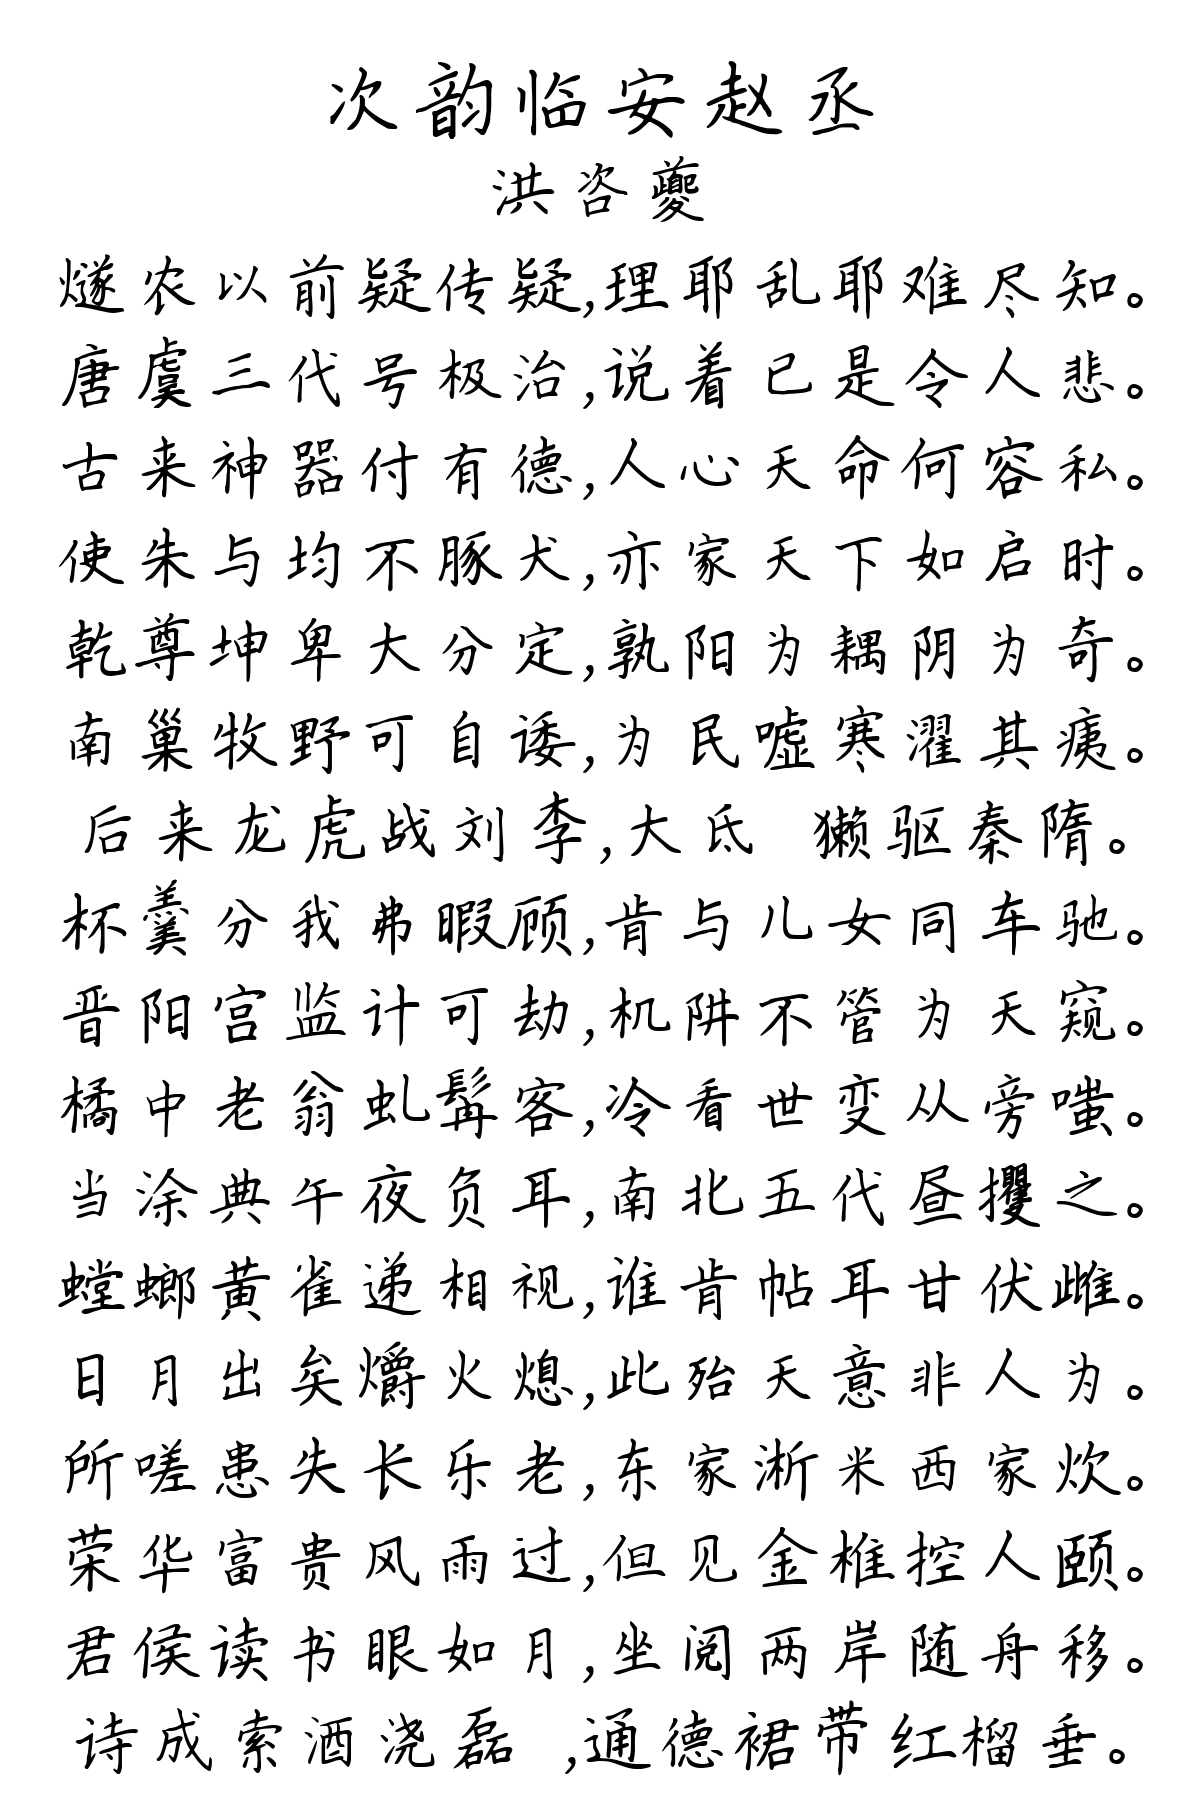 次韵临安赵丞
洪咨夔
燧农以前疑传疑,理耶乱耶难尽知。
唐虞三代号极治,说着已是令人悲。
古来神器付有德,人心天命何容私。
使朱与均不豚犬,亦家天下如启时。
乾尊坤卑大分定,孰阳为耦阴为奇。
南巢牧野可自诿,为民嘘寒濯其痍。
后来龙虎战刘李,大氐 獭驱秦隋。
杯羹分我弗暇顾,肯与儿女同车驰。
晋阳宫监计可劫,机阱不管为天窥。
橘中老翁虬髯客,冷看世变从旁嗤。
当涂典午夜负耳,南北五代昼攫之。
螳螂黄雀递相视,谁肯帖耳甘伏雌。
日月出矣爝火熄,此殆天意非人为。
所嗟患失长乐老,东家淅米西家炊。
荣华富贵风雨过,但见金椎控人颐。
君侯读书眼如月,坐阅两岸随舟移。
诗成索酒浇磊 ,通德裙带红榴垂。